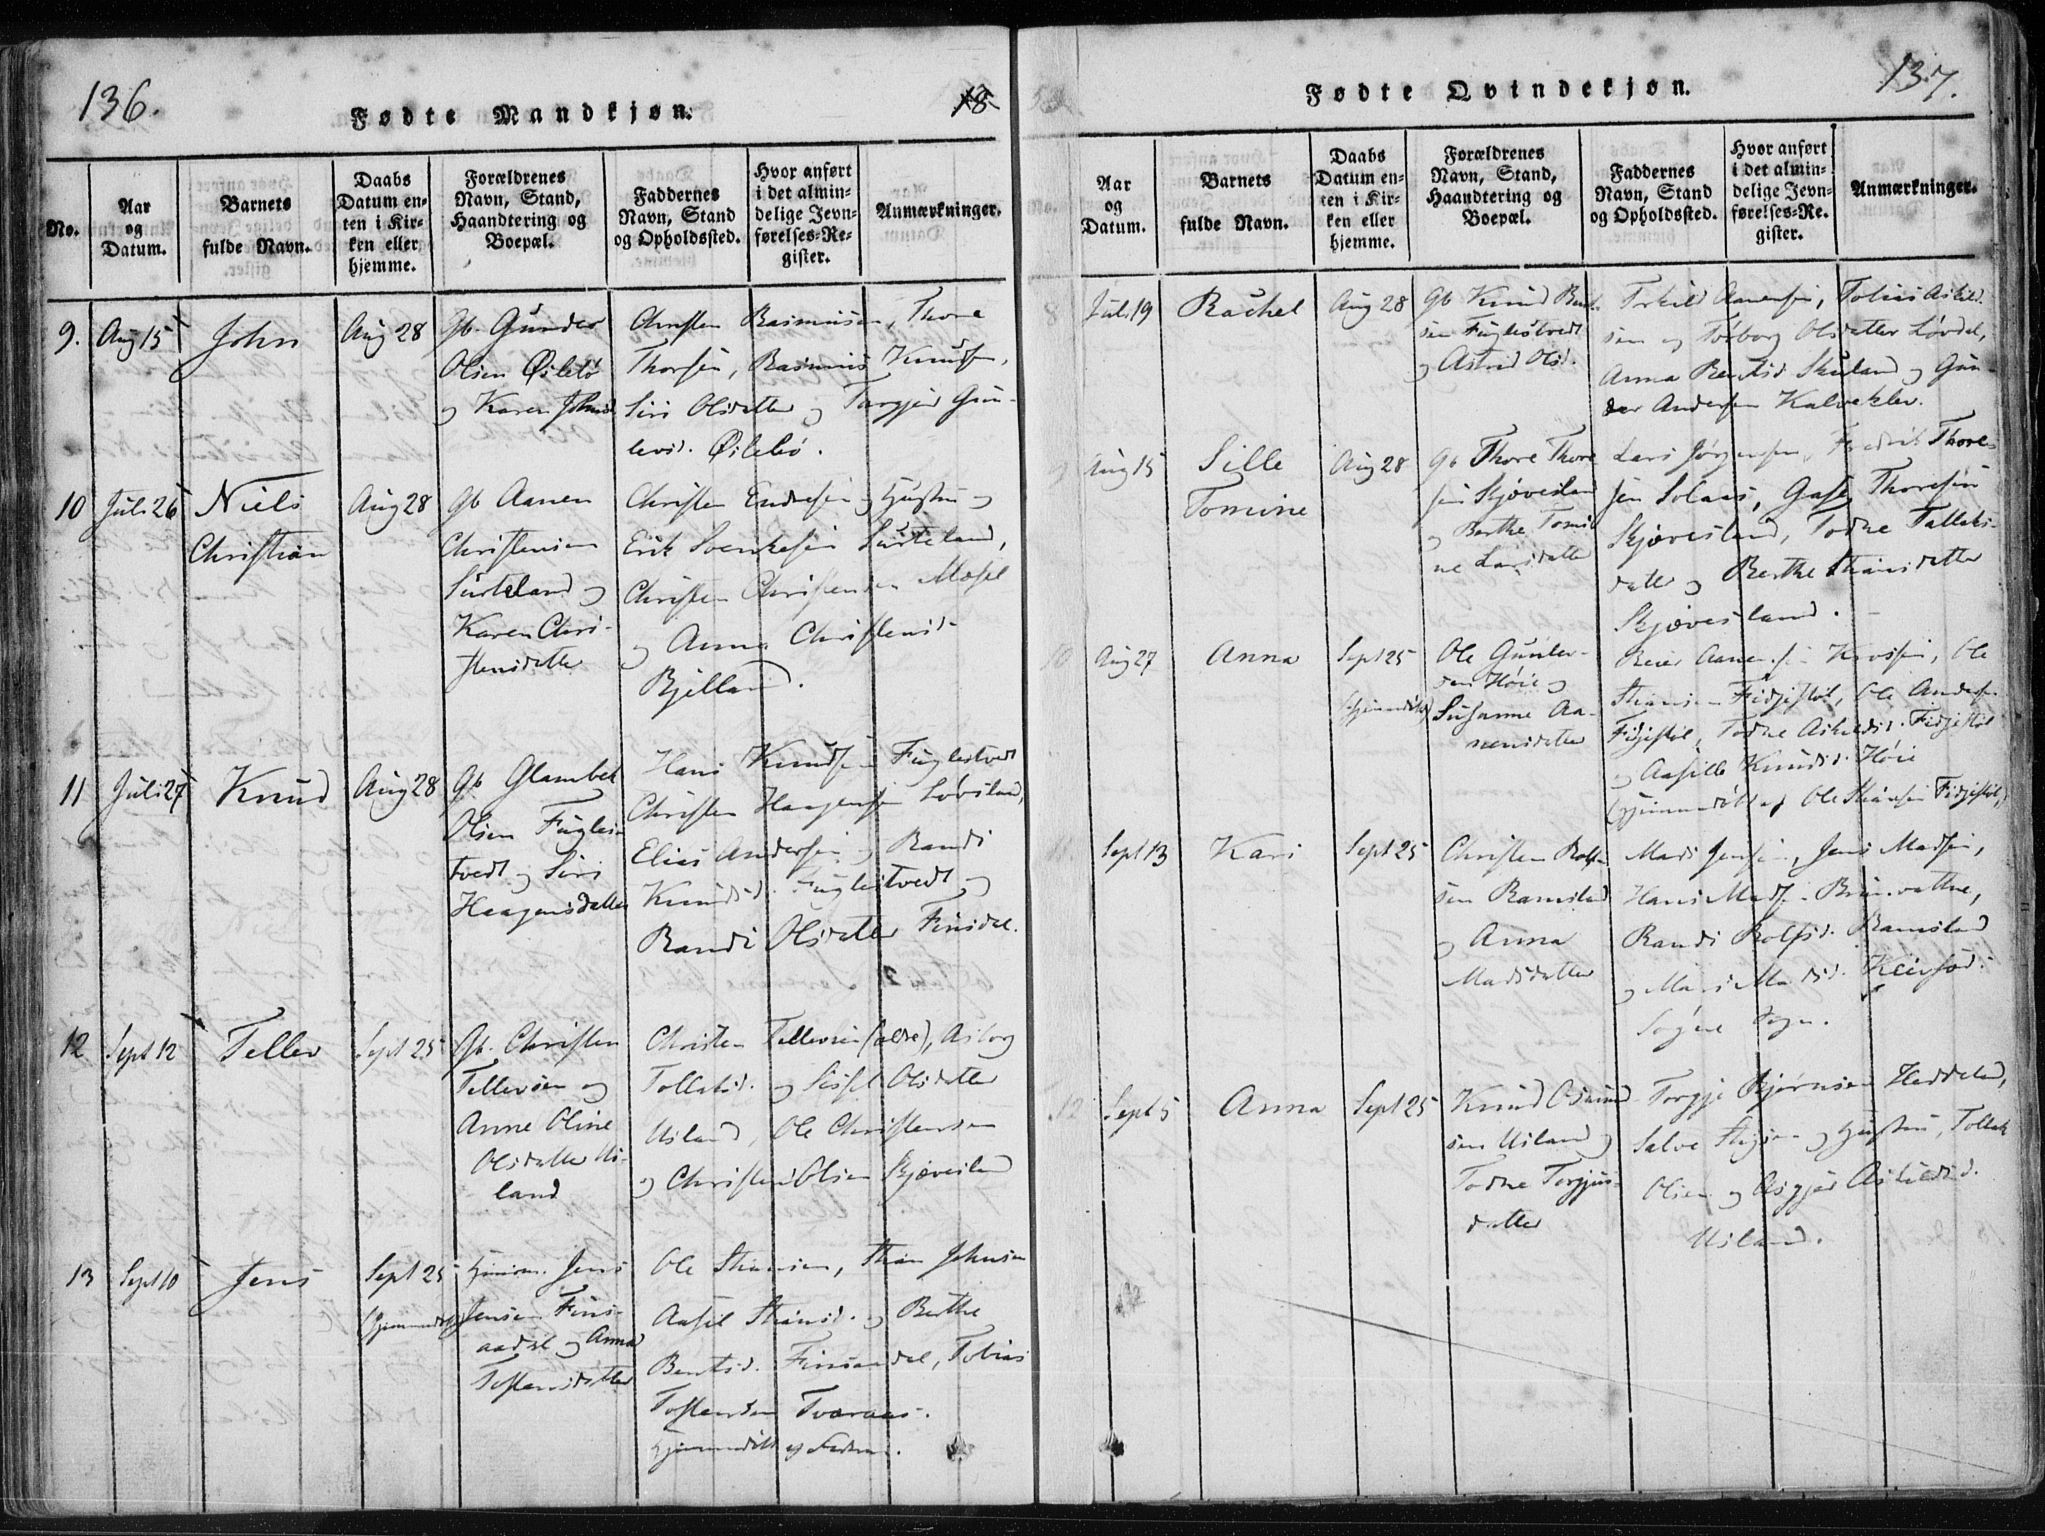 136.
18
Fødte Mandkjøn.
No.
Aar
og
Datum.
Barnets
fulde Navn.
Daabs
Datum en-
ten i Kir-
ken eller
hjemme.
Forældrenes
Navn, Stand,
Haandtering og
Boepæl.
Faddernes
Navn, Stand
og Opholdssted.
Hvor anført
i det almin-
delige Jevn-
førelses-Re-
gister.
Anmærkninger.
9. Aug 15 John Aug 28
Gb. Gunder
Olsen Øilebø
og Karen Johnsd
Christen Rasmusen, Thore
Thorsen, Rasmus Knudsen,
Siri Olsdatter og Torgjer Gun-
levsd. Øilebø.
10 Juli 26 Niels
Christian
Aug 28
Gb Aanen
Christensen
Surteland og
Karen Chri-
stensdatter
Christen Endresen og Hustru og
Erik Svenkesen Surteland,
Christen Christensen Mosel
og Anna Christensd.
Bjelland.
11 Juli 27 Knud Aug 28
Gb. Glambek
Olsen Fugles-
tvedt og Siri
Haagensdatter
Hans Knudsen Fuglestvedt
Christen Haagensen Løvsland,
Elias Andersen, Randi
Knudsd. Fuglestvedt og
Randi Olsdatter Finsdal.
12 Sept 12 Tellev Sept 25
Gb. Christen
Tellevsen og
Anne Oline
Olsdatter Us-
land
Christen Tellevsen (ældre), Asborg
Tollaksd. og Sissel Olsdatter
Usland, Ole Christensen
og Christen Olsen Skjævesland
13 Sept 10 Jens Sept 25
(hjemmedøbt)
Huusm. Jens
Jensen Fins-
aadal og Anna
Tostensdatter
Ole Stiansen, Stian Johnsen
Aasil Stiansd. og Berthe
Bentsd. Finsaadal, Tobias
Tostensen Tveraas.
Hjemmedøbt af Faderen.
137.
Fødte Qvindekjøn.
Aar
og
Datum.
Barnets
fulde Navn.
Daabs
Datum en-
ten i Kir-
ken eller
hjemme.
Forældrenes
Navn, Stand,
Haandtering og
Boepæl.
Faddernes
Navn, Stand
og Opholdssted.
Hvor anført
i det almin-
delige Jevn-
førelses-Re-
gister.
Anmærkninger.
8 Juli 19 Rachel Aug 28
Gb Knud Bent-
sen Fuglestvedt
og Astrid Olsd.
Terkild Aanensen, Tobias Askild-
sen og Torborg Olsdatter Løvdal,
Anna Bentsd. Skuland og Gun-
der Andersen Kalvekløv.
9 Aug 15 Sille
Tomine
Aug 28
Gb Thore Thore
sen Skjævesland
og Berthe Tomi
ne Larsdatter
Lars Jørgensen, Fredrik Thore-
sen Solaas, Thoresen
Skjævesland, Todne Tallaks-
datter og Berthe Stiansdatter
Skjævesland.
10 Aug 27 Anna Sept 25
(hjemmedøbt)
Ole Gunder-
sen Høie og
Susanne Aa-
nensdatter
Reier Aanensen Krossen, Ole
Stiansen Fidjestøl, Ole Andersen
Fidjestøl, Todne Askildsd. Fidjestøl
og Aasille Knudsd. Høie
(hjemmedøbt af Ole Stiansen Fidjestøl)
11 Sept 13 Kari Sept 25
Christen Rolf
sen Ramsland
og Anna
Madsdatter
Mads Jensen, Jens Madsen,
Hans Mads. Brunvatne,
Randi Rolfsd. Ramsland
og Mari Madsd.
Søgne Sogn.
12 Sept 5 Anna Sept 25
Knud Osmund
sen Usland og
Todne Torgjus-
datter
Torgje Bjørnsen Heddeland,
Salve og Hustru, Tollak
Olsen og Asgjer Askildsd.
Usland.